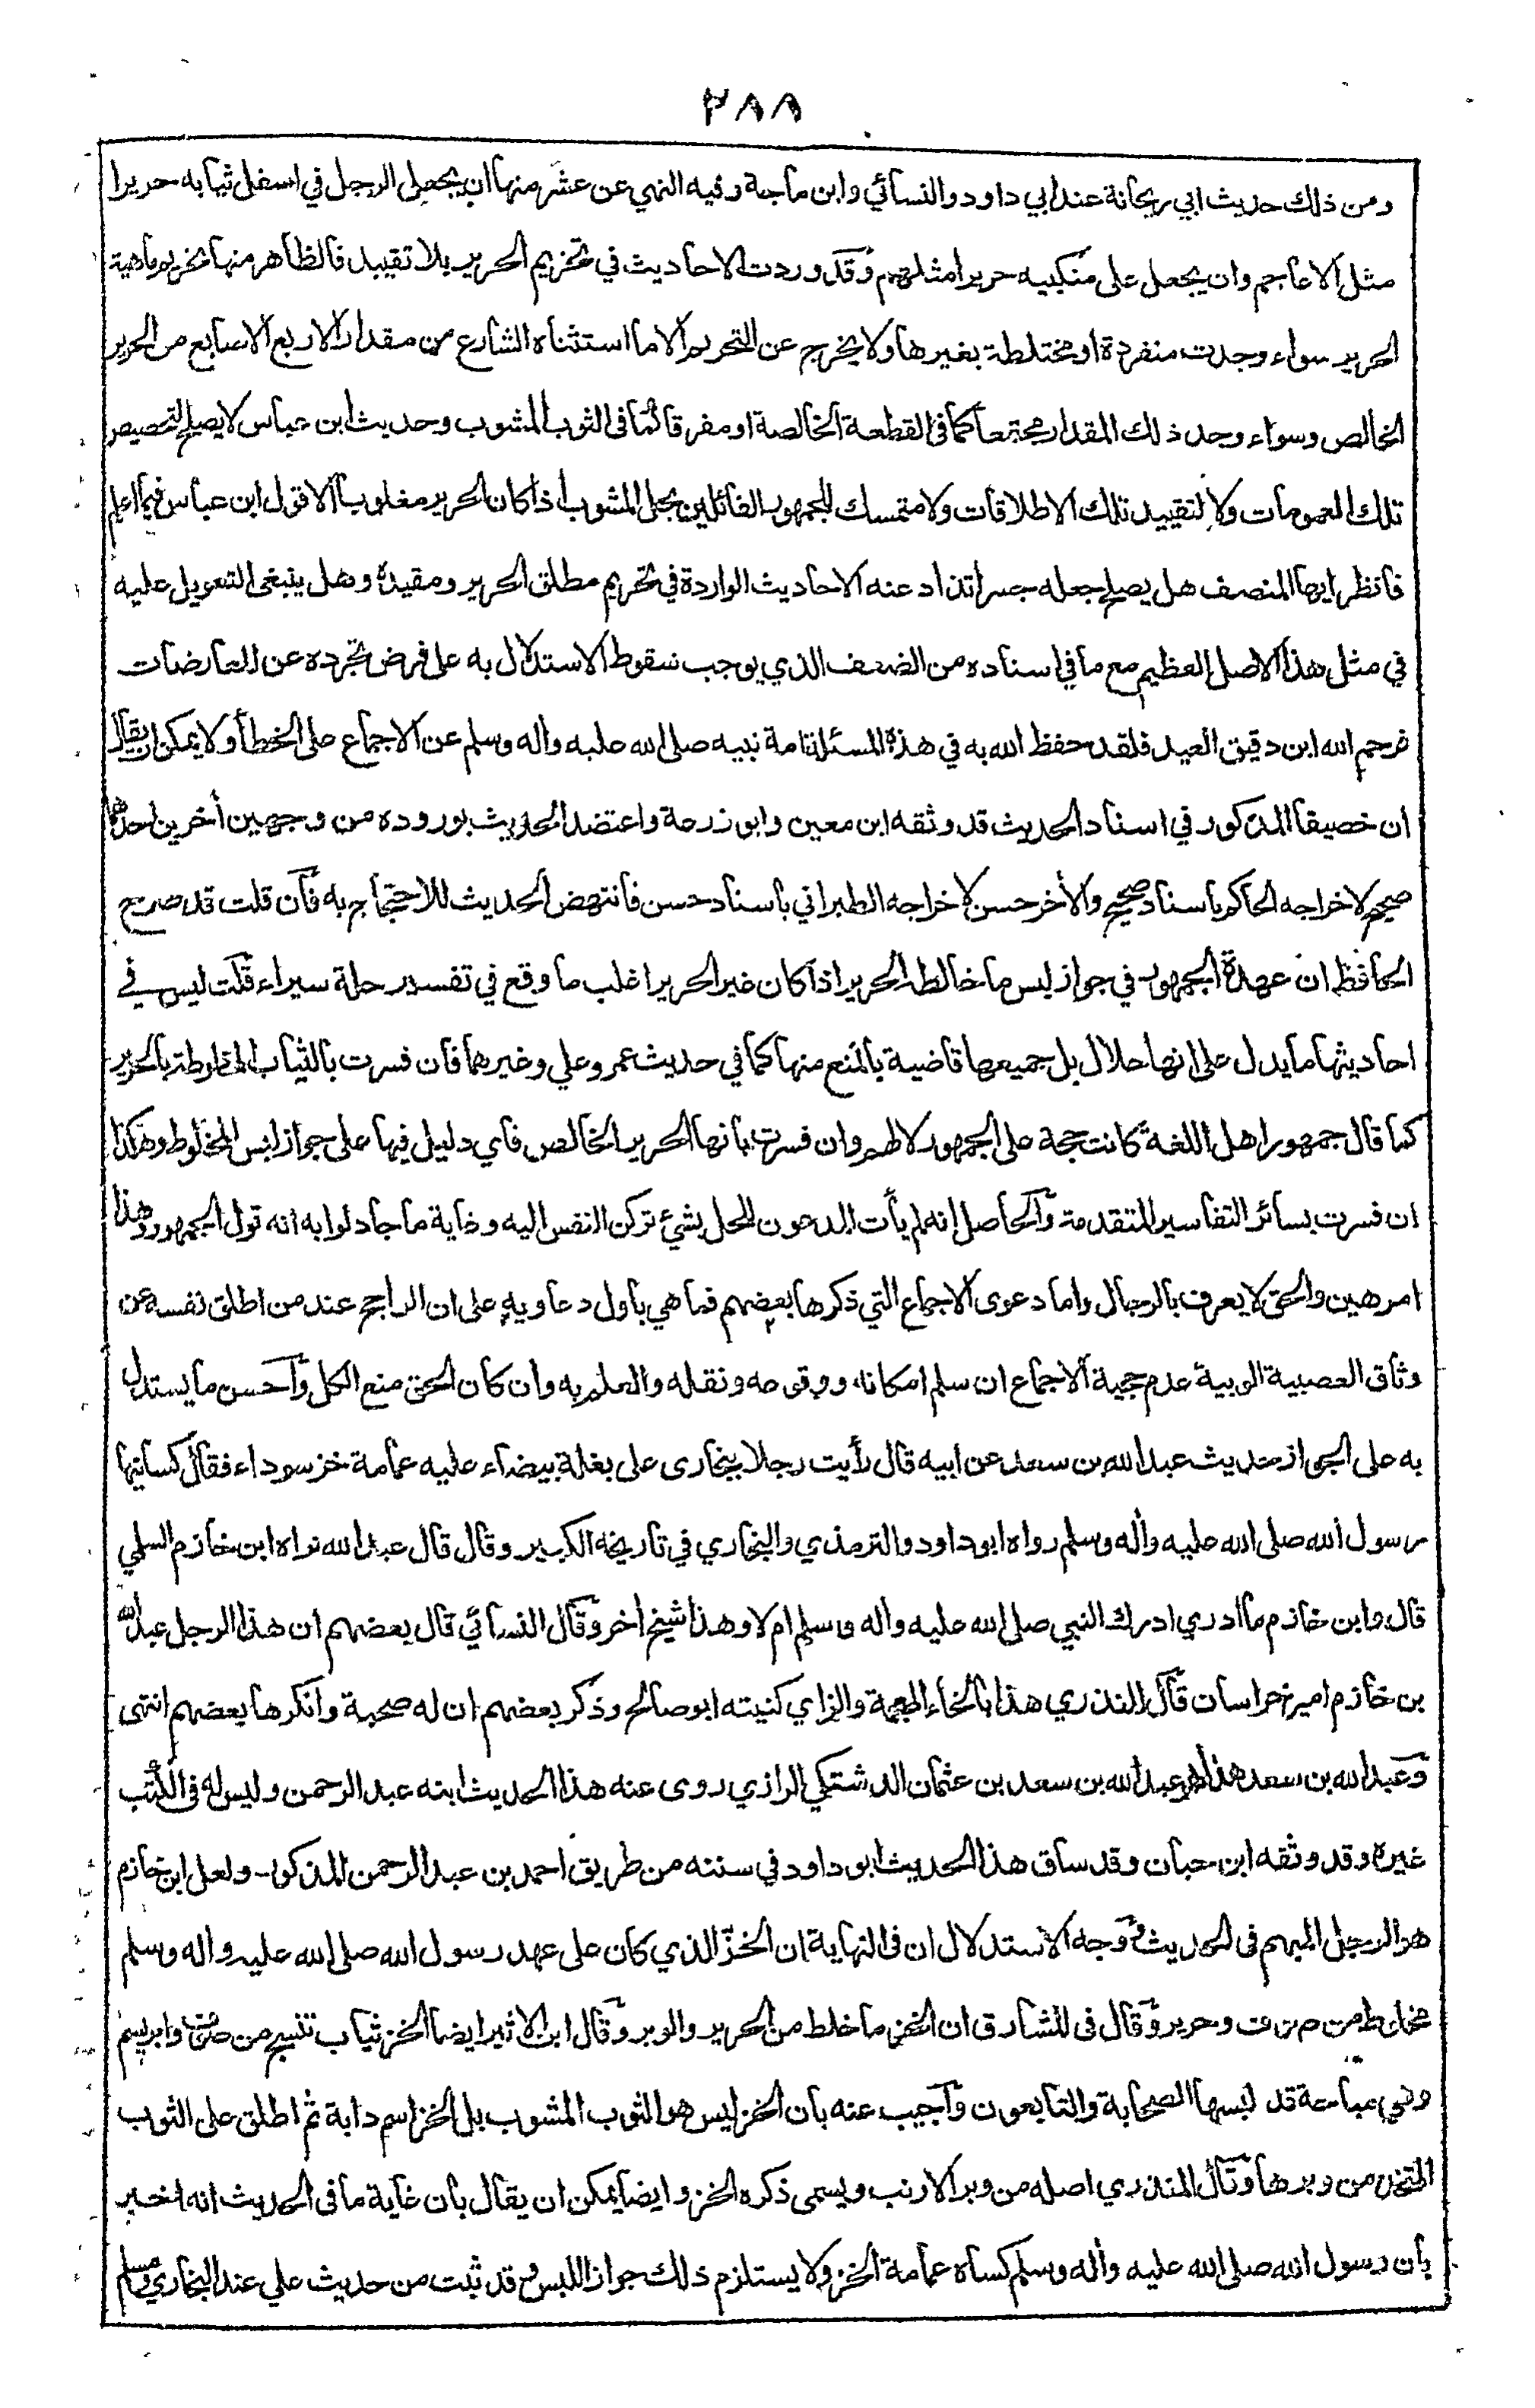 ٢٨٨
ومن ذلك حديث ابي ريحانة عند ابي داود والنسائي وابن ماجة وفيه النهي عن عشر منها ان يجعل الرجل في اسفل ثيابه حريرا
مثل الاعاجم وان يجعل على منكبيه حريرا مثلهم وقد وردت الاحاديث في تحريم الحرير بلا تقييد فالظاهر منها تحريم ماهية
الحرير سواء وجدت منفردة او مختلطة بغيرها ولا يخرج عن التحريم الا ما استثناه الشارع من مقدار الاربع الاصابع من الحرير
الخالص وسواء وجد ذلك المقدار مجتمعا كما فى القطعة الخالصة او مفرقا كما فى الثوب المشوب وحديث ابن عباس لا يصلح لتخصيص
تلك العمومات ولا لتقييد تلك الاطلاقات ولا متمسك للجمهور القائلين بحل المشوب اذا كان الحرير مغلوبا الا قول ابن عباس فيما اعلم
فانظر ايها المنصف هل يصلح جعله جسرا تذاد عنه الاحاديث الواردة في تحريم مطلق الحرير ومقيده وهل ينبغى التعويل عليه
في مثل هذا الاصل العظيم مع ما في اسناده من الضعف الذي يوجب سقوط الاستدلال به على فرض تجرده عن المعارضات
فرحم الله ابن دقيق العيد فلقد حفظ الله به في هذه المسئلة امة نبيه صلى الله عليه واله وسلم عن الاجماع على الخطأ ولا يمكن ان يقال
ان خصيفا المذكور في اسناد الحديث قد وثقه ابن معين وابو زرعة واعتضد الحديث بوروده من وجهين أخرين احدهما
صحيح لاخراجه الحاكم باسناد صحيح والأخر حسن لاخراجه الطبراني باسناد حسن فانتهض الحديث للاحتجاج به فان قلت قد صرح
الحافظ ان عهدة الجمهور في جواز لبس ما خالطه الحرير اذا كان غير الحرير اغلب ما وقع في تفسير حلة سيراء قلت ليس في
احاديثها ما يدل على انها حلال بل جميعها قاضية بالمنع منها كما في حديث عمر وعلي وغيرهما فان فسرت بالثياب المخلوطة بالحرير
كما قال جمهور اهل اللغة كانت حجة على الجمهور لا لهم وان فسرت بانها الحرير الخالص فاي دليل فيها على جواز لبس المخلوط وهكذا
ان فسرت بسائر التفاسير المتقدمة والحاصل انه لم يأت المدعون للحل بشئ تركن النفس اليه وغاية ما جادلوا به انه قول الجمهور وهذا
امر هين والحق لا يعرف بالرجال واما دعوى الاجماع التي ذكرها بعضهم فما هي باول دعاويه على ان الراجح عند من اطلق نفسه عن
وثاق العصبية الوبية عدم حجية الاجماع ان سلم امكانه ووقوعه ونقله والعلم به وان كان الحق منع الكل وآحسن ما يستدل
به على الجواز حديث عبد الله بن سعد عن ابيه قال رأيت رجلا ببخارى على بغلة بيضاء عليه عمامة خز سوداء فقال كسانيها
رسول الله صلى الله عليه وأله وسلم رواه ابو داود والترمذي والبخاري في تاريخه الكبير وقال قال عبد الله نراه ابن خازم السلمي
قال وابن خازم ما ادري ادرك النبي صلى الله عليه واله وسلم ام لا وهذا شيخ اخر وقال النسائي قال بعضهم ان هذا الرجل عبد الله
بن خازم امير خراسان قال المنذري هذا بالخاء المعجمة والزاي كنيته ابو صالح وذكر بعضهم ان له صحبة وانكرها بعضهم انتهى
وعبد الله بن سعد هذا هو عبد الله بن سعد بن عثمان الدشتكي الرازي روى عنه هذا الحديث ابنه عبد الرحمن وليس له فى الكتب
غيره وقد وثقه ابن حبان وقد ساق هذا الحديث ابو داود في سننه من طريق احمد بن عبد الرحمن المذكور ولعل ابن خازم
هو الرجل المبهم فى الحديث ووجه الاستدلال ان فى النهاية ان الخزّ الذي كان على عهد رسول الله صلى الله عليه واله وسلم
مخلوط من صوف وحرير وقال فى المشارق ان الخز ما خلط من الحرير والوبر وقال ابن الاثير ايضا الخز ثياب تنسج من صوف وابريسم
وهي مباحة قد لبسها الصحابة والتابعون وآجيب عنه بان الخز ليس هو الثوب المشوب بل الخز اسم دابة ثم اطلق على الثوب
المتخذ من وبرها وقال المنذري اصله من وبر الارنب ويسمى ذكره الخز وايضا يمكن ان يقال بان غاية ما فى الحديث انه اخبر
بان رسول الله صلى الله عليه وأله وسلم كساه عمامة الخز ولا يستلزم ذلك جواز اللبس وقد ثبت من حديث علي عند البخاري ومسلم